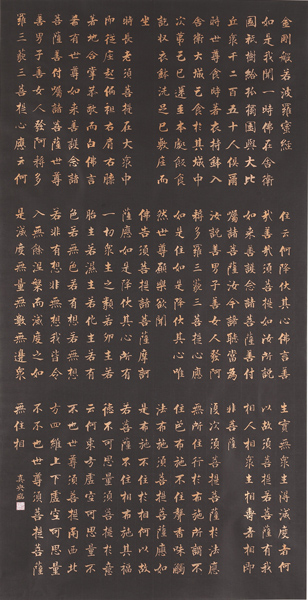 金剛般若波羅蜜經
如是我聞一時佛在舍衛
國祇樹給孤獨園與大比
丘眾千二百五十人俱爾
時世尊食時著衣持鉢入
舍衛大城乞食於其城中
次第乞已還至本處飯食
訖收衣鉢洗足已敷座而
坐
時長老須菩提在大眾中
即從座起偏袒右肩右膝
著地合掌恭敬而白佛言
希有世尊如來善護念諸
菩薩善付囑諸菩薩世尊
善男子善女人發阿耨多
羅三藐三菩提心應云何
住云何降伏其心佛言善
哉善哉須菩提如汝所說
如來善護念諸菩薩善付
囑諸菩薩汝今諦聽當為
汝說善男子善女人發阿
耨多羅三藐三菩提心應
如是住如是降伏其心唯
然世尊願樂欲聞
佛告須菩提諸菩薩摩訶
薩應如是降伏其心所有
一切眾生之類若卵生若
胎生若濕生若化生若有
色若無色若有想若無想
若非有想非無想我皆令
入無餘涅槃而滅度之如
是滅度無量無數無邊眾
生實無眾生得滅度者何
以故須菩提若菩薩有我
相人相眾生相壽者相即
非菩薩
復次須菩提菩薩於法應
無所住行於布施所謂不
住色布施不住聲香味觸
法布施須菩提菩薩應如
是布施不住於相何以故
若菩薩不住相布施其福
德不可思量須菩提於意
云何東方虛空可思量不
不也世尊須菩提南西北
方四維上下虛空可思量
不不也世尊須菩提菩薩
無住相